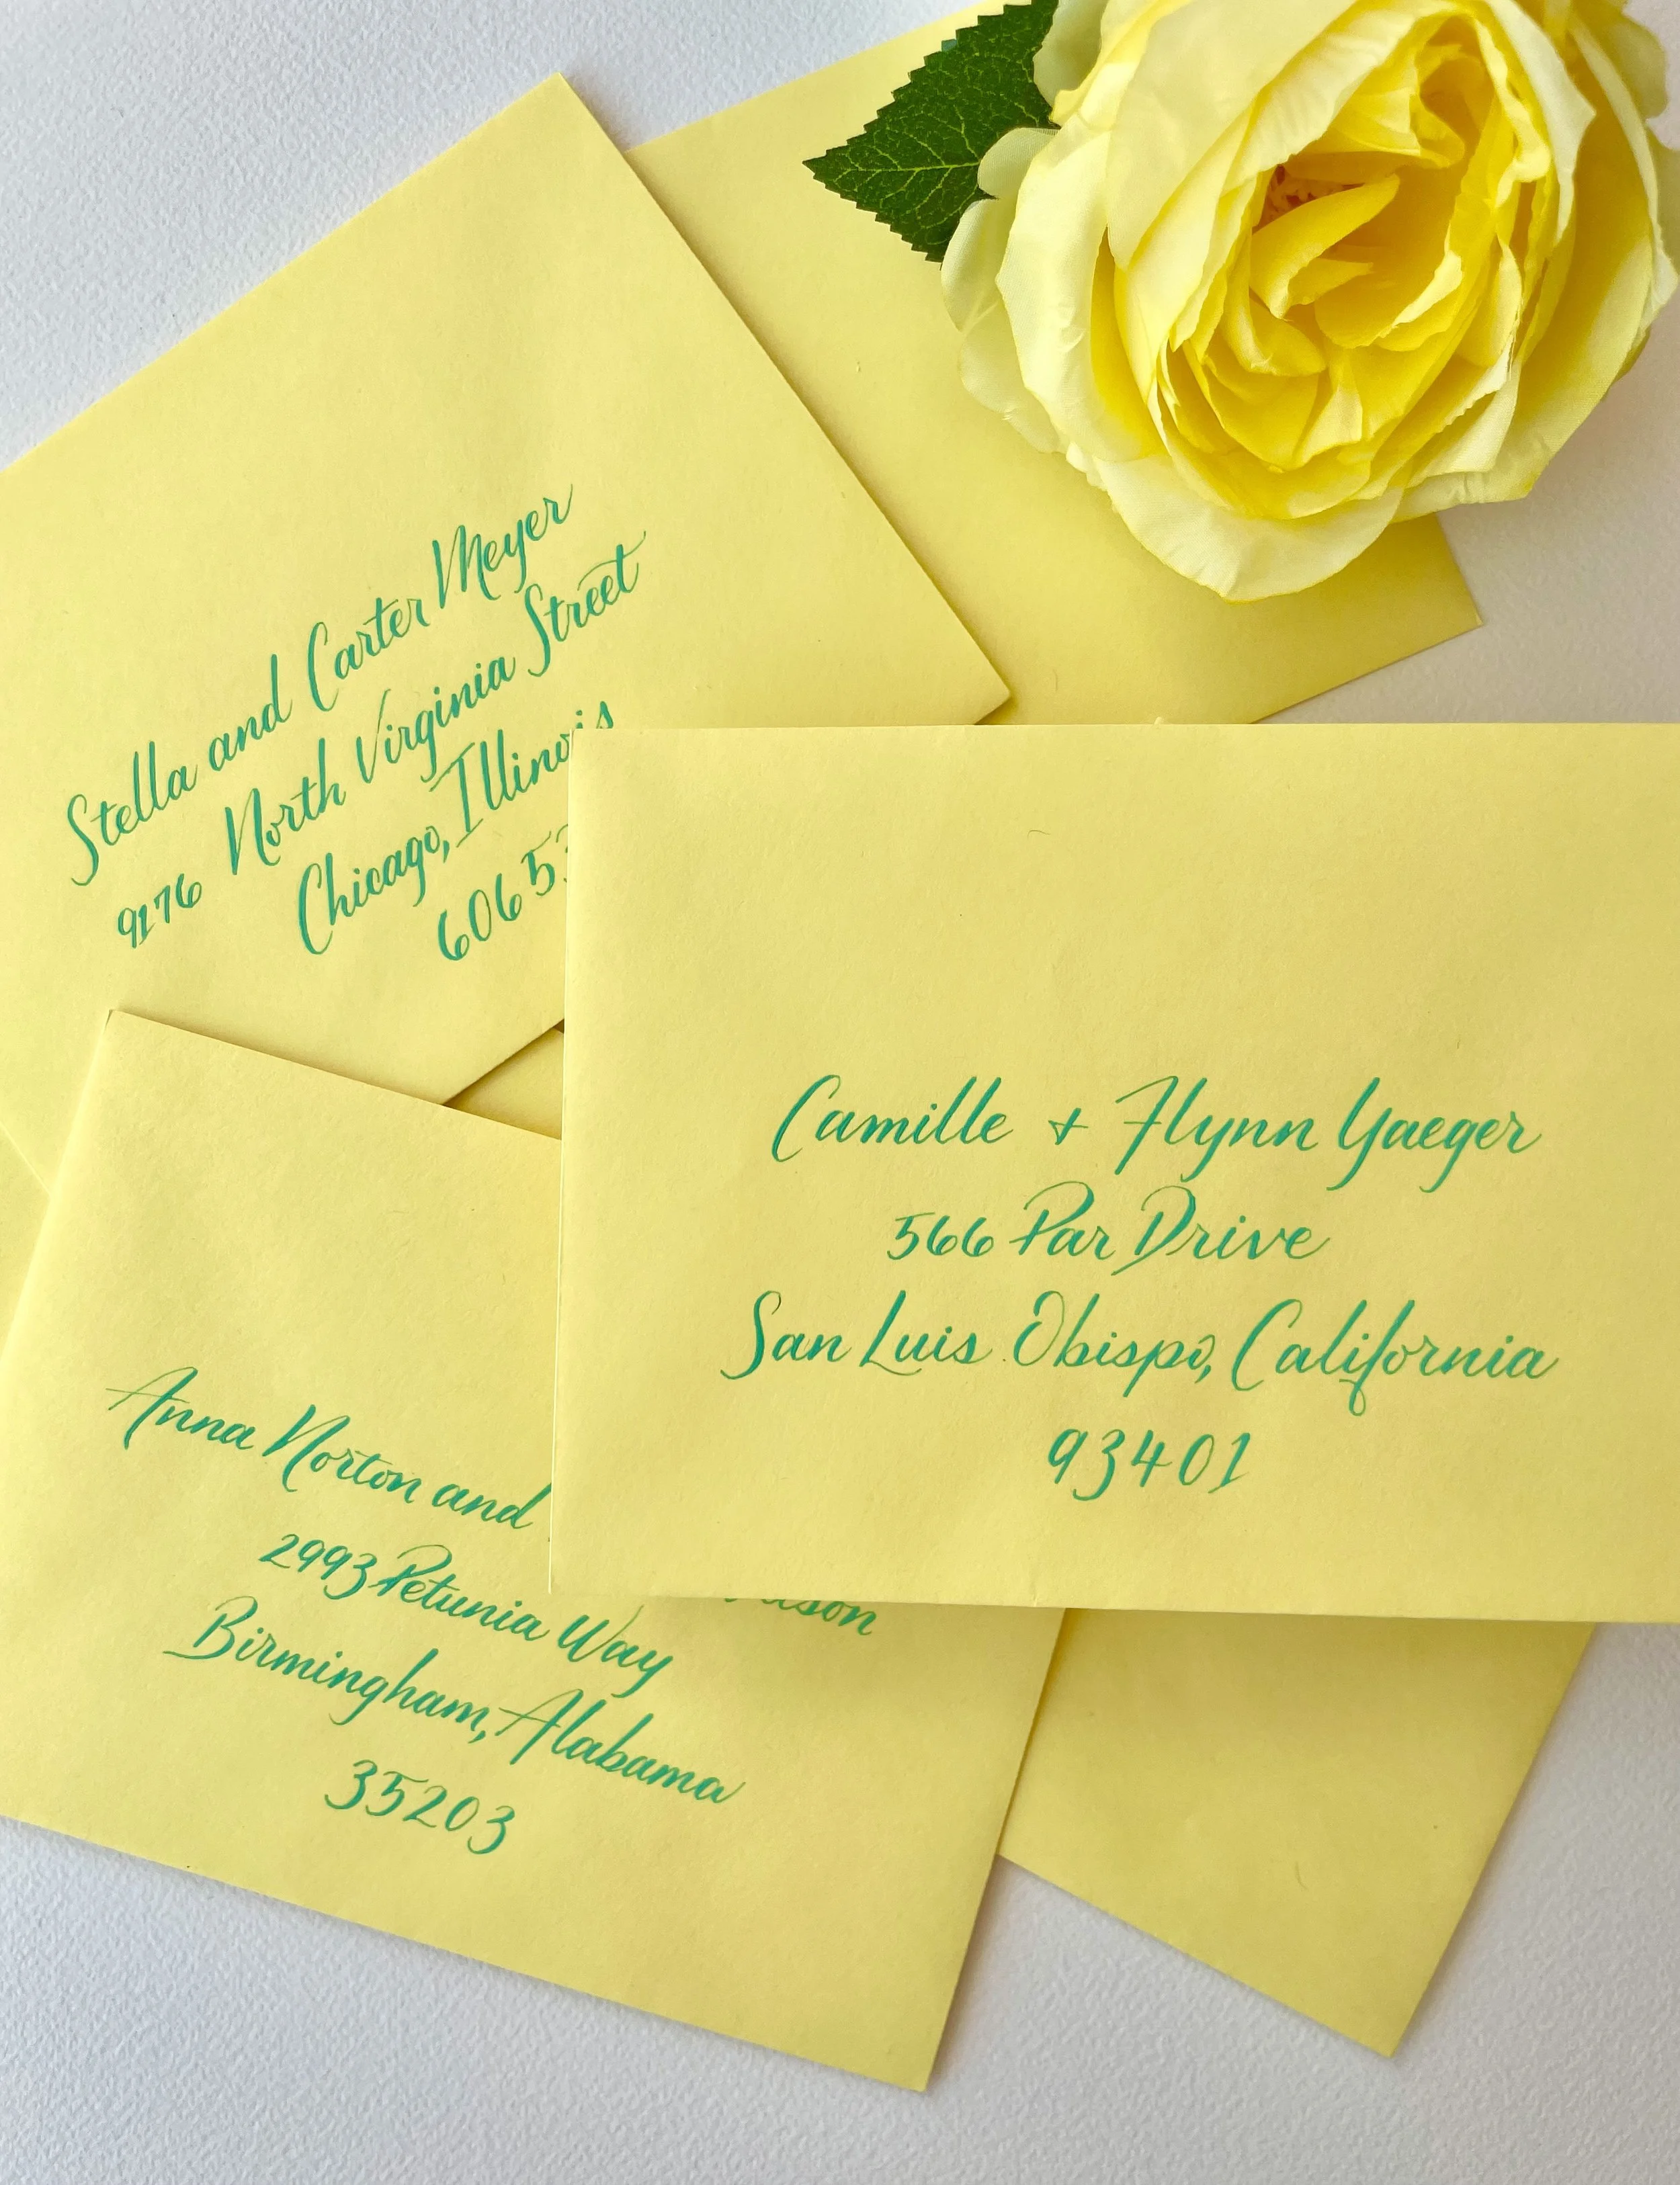 Stella and Carter Meyer
9176 North Virginia Street
Chicago, Illinois
Camille + Flynn Yaeger
566 Par Drive
San Luis Obispo, California
93401
Anna Norton and
2993 Petunia Way
Birmingham, Alabama
35203